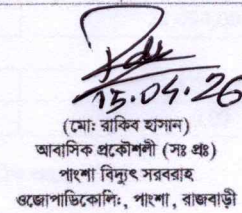 15.04.26
(মোঃ রাকিব হাসান)
আবাসিক প্রকৌশলী (সঃ প্রঃ)
পাংশা বিদ্যুৎ সরবরাহ
ওজোপাডিকোলিঃ, পাংশা, রাজবাড়ী